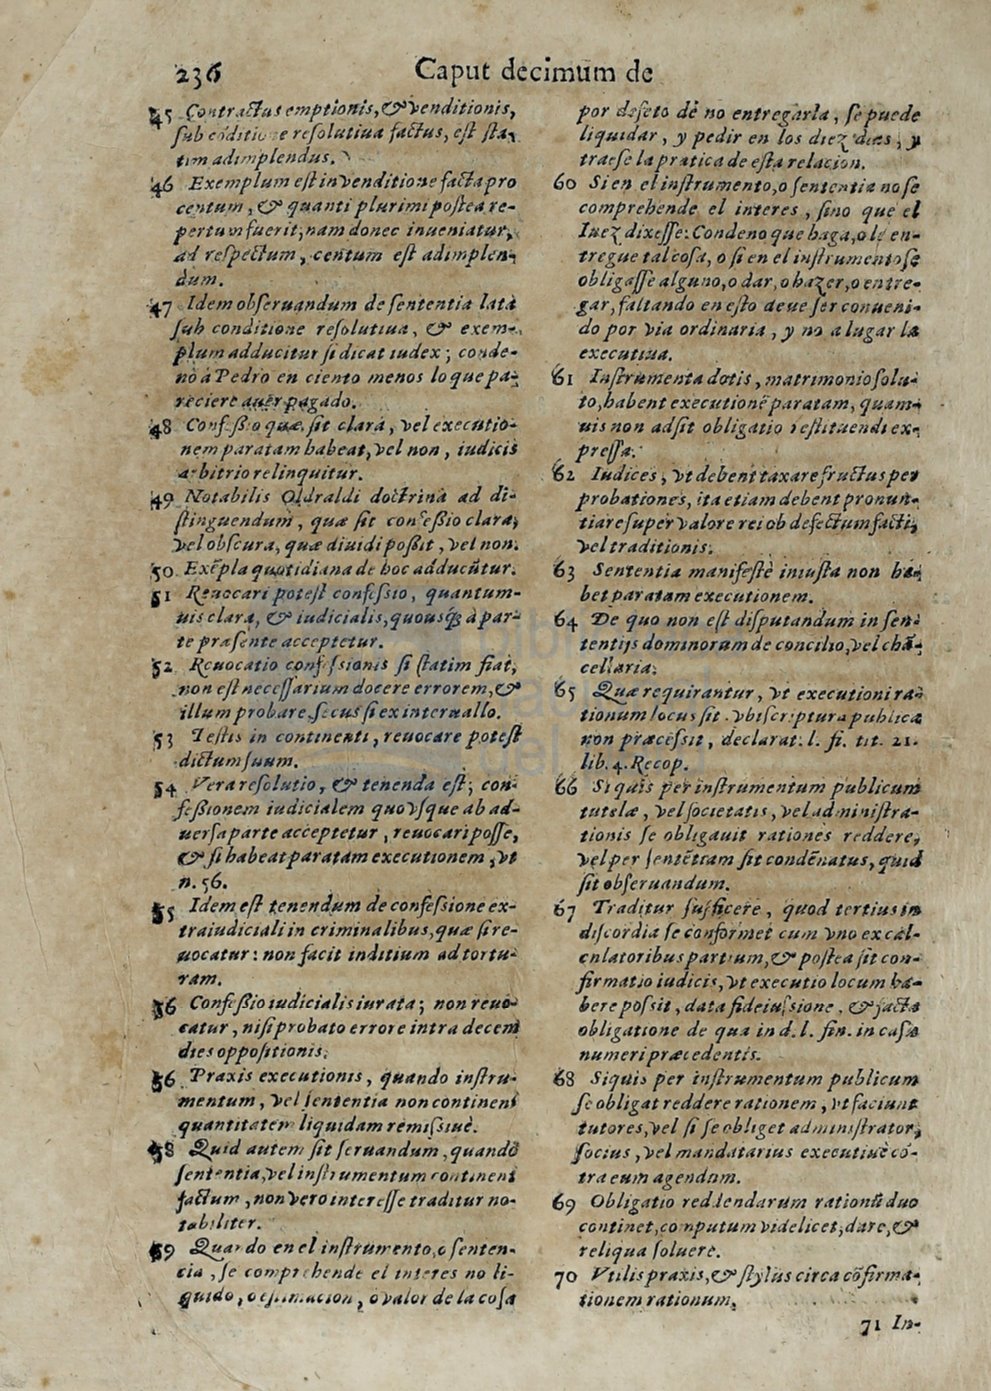 236
Caput decimum de
45 Contractus emptionis, & venditionis,
sub cõditione resolutiua factus, est sta-
tim adimplendus.
46 Exemplum est in venditione facta pro
centum, & quanti plurimi postea re-
pertum fuerit; nam donec inueniatur,
ad respectum, centum est adimplen-
dum.
47 Idem obseruandum de sententia lata
sub conditione resolutiua, & exem-
plum adducitur si dicat iudex; conde-
nò á Pedro en ciento menos lo que pa-
reciere auer pagado.
48 Confeßio quæ sit clara, vel executio-
nem paratam habeat, vel non, iudicis
arbitrio relinquitur.
49 Notabilis Oldraldi doctrina ad di-
stinguendum, quæ sit confeßio clara,
vel obscura, quæ diuidi poßit, vel non.
50 Exẽpla quotidiana de hoc adducũtur.
51 Reuocari potest confessio, quantum-
uis clara, & iudicialis, quousq; à par-
te præsente acceptetur.
52 Reuocatio confessionis si statim fiat,
non est necessarium docere errorem, &
illum probare, secus si ex interuallo.
53 Testis in continenti, reuocare potest
dictum suum.
54 Vera resolutio, & tenenda est; con-
feßionem iudicialem quovsque ab ad-
uersa parte acceptetur, reuocari posse,
& si habeat paratam executionem, vt
n. 56.
55 Idem est tenendum de confessione ex-
traiudiciali in criminalibus, quæ si re-
uocatur: non facit inditium ad tortu-
ram.
56 Confeßio iudicialis iurata; non reuo-
catur, nisi probato errore intra decem
dies oppositionis.
56 Praxis executionis, quando instru-
mentum, vel sententia non continent
quantitatem liquidam remissiuè.
58 Quid autem sit seruandum, quando
sententia, vel instrumentum continent
factum, non vero interesse traditur no-
tabiliter.
59 Quando en el instrumento, o senten-
cia, se comprehende el interes no li-
quido, o estimacion, o valor de la cosa
por defeto de no entregarla, se puede
liquidar, y pedir en los diez dias, y
traese la pratica de esta relacion.
60 Si en el instrumento, o sententia no se
comprehende el interes, sino que el
Iuez dixesse: Condeno que haga, o le en-
tregue tal cosa, o si en el instrumento se
obligasse alguno, o dar, o hazer, o entre-
gar, faltando en esto deue ser conueni-
do por via ordinaria, y no a lugar la
executiua.
61 Instrumenta dotis, matrimonio solu-
to, habent executionẽ paratam, quam-
uis non adsit obligatio restituendi ex-
pressa.
62 Iudices, vt debent taxare fructus per
probationes, ita etiam debent pronun-
tiare super valore rei ob defectum facti,
vel traditionis.
63 Sententia manifestè iniusta non ha-
bet paratam executionem.
64 De quo non est disputandum in sen-
tentijs dominorum de concilio, vel chã-
cellaria.
65 Quæ requirantur, vt executioni ra-
tionum locus sit. vbi scriptura publica
non præcessit, declarat. l. fi. tit. 21.
lib. 4. Recop.
66 Si quis per instrumentum publicum
tutelæ, vel societatis, vel administra-
tionis se obligauit rationes reddere,
vel per sentẽtiam sit condẽnatus, quid
sit obseruandum.
67 Traditur sufficere, quod tertius in
discordia se conformet cum vno ex cal-
culatoribus partium, & postea sit con-
firmatio iudicis, vt executio locum ha-
bere possit, data fideiussione, & facta
obligatione de qua in d. l. fin. in casa
numeri præcedentis.
68 Siquis per instrumentum publicum
se obligat reddere rationem, vt faciunt
tutores, vel si se obliget administrator,
socius, vel mandatarius executiuè cõ-
tra eum agendum.
69 Obligatio reddendarum rationũ duo
continet, computum videlicet, dare, &
reliqua soluere.
70 Vtilis praxis, & stylus circa cõfirma-
tionem rationum.
71 In-